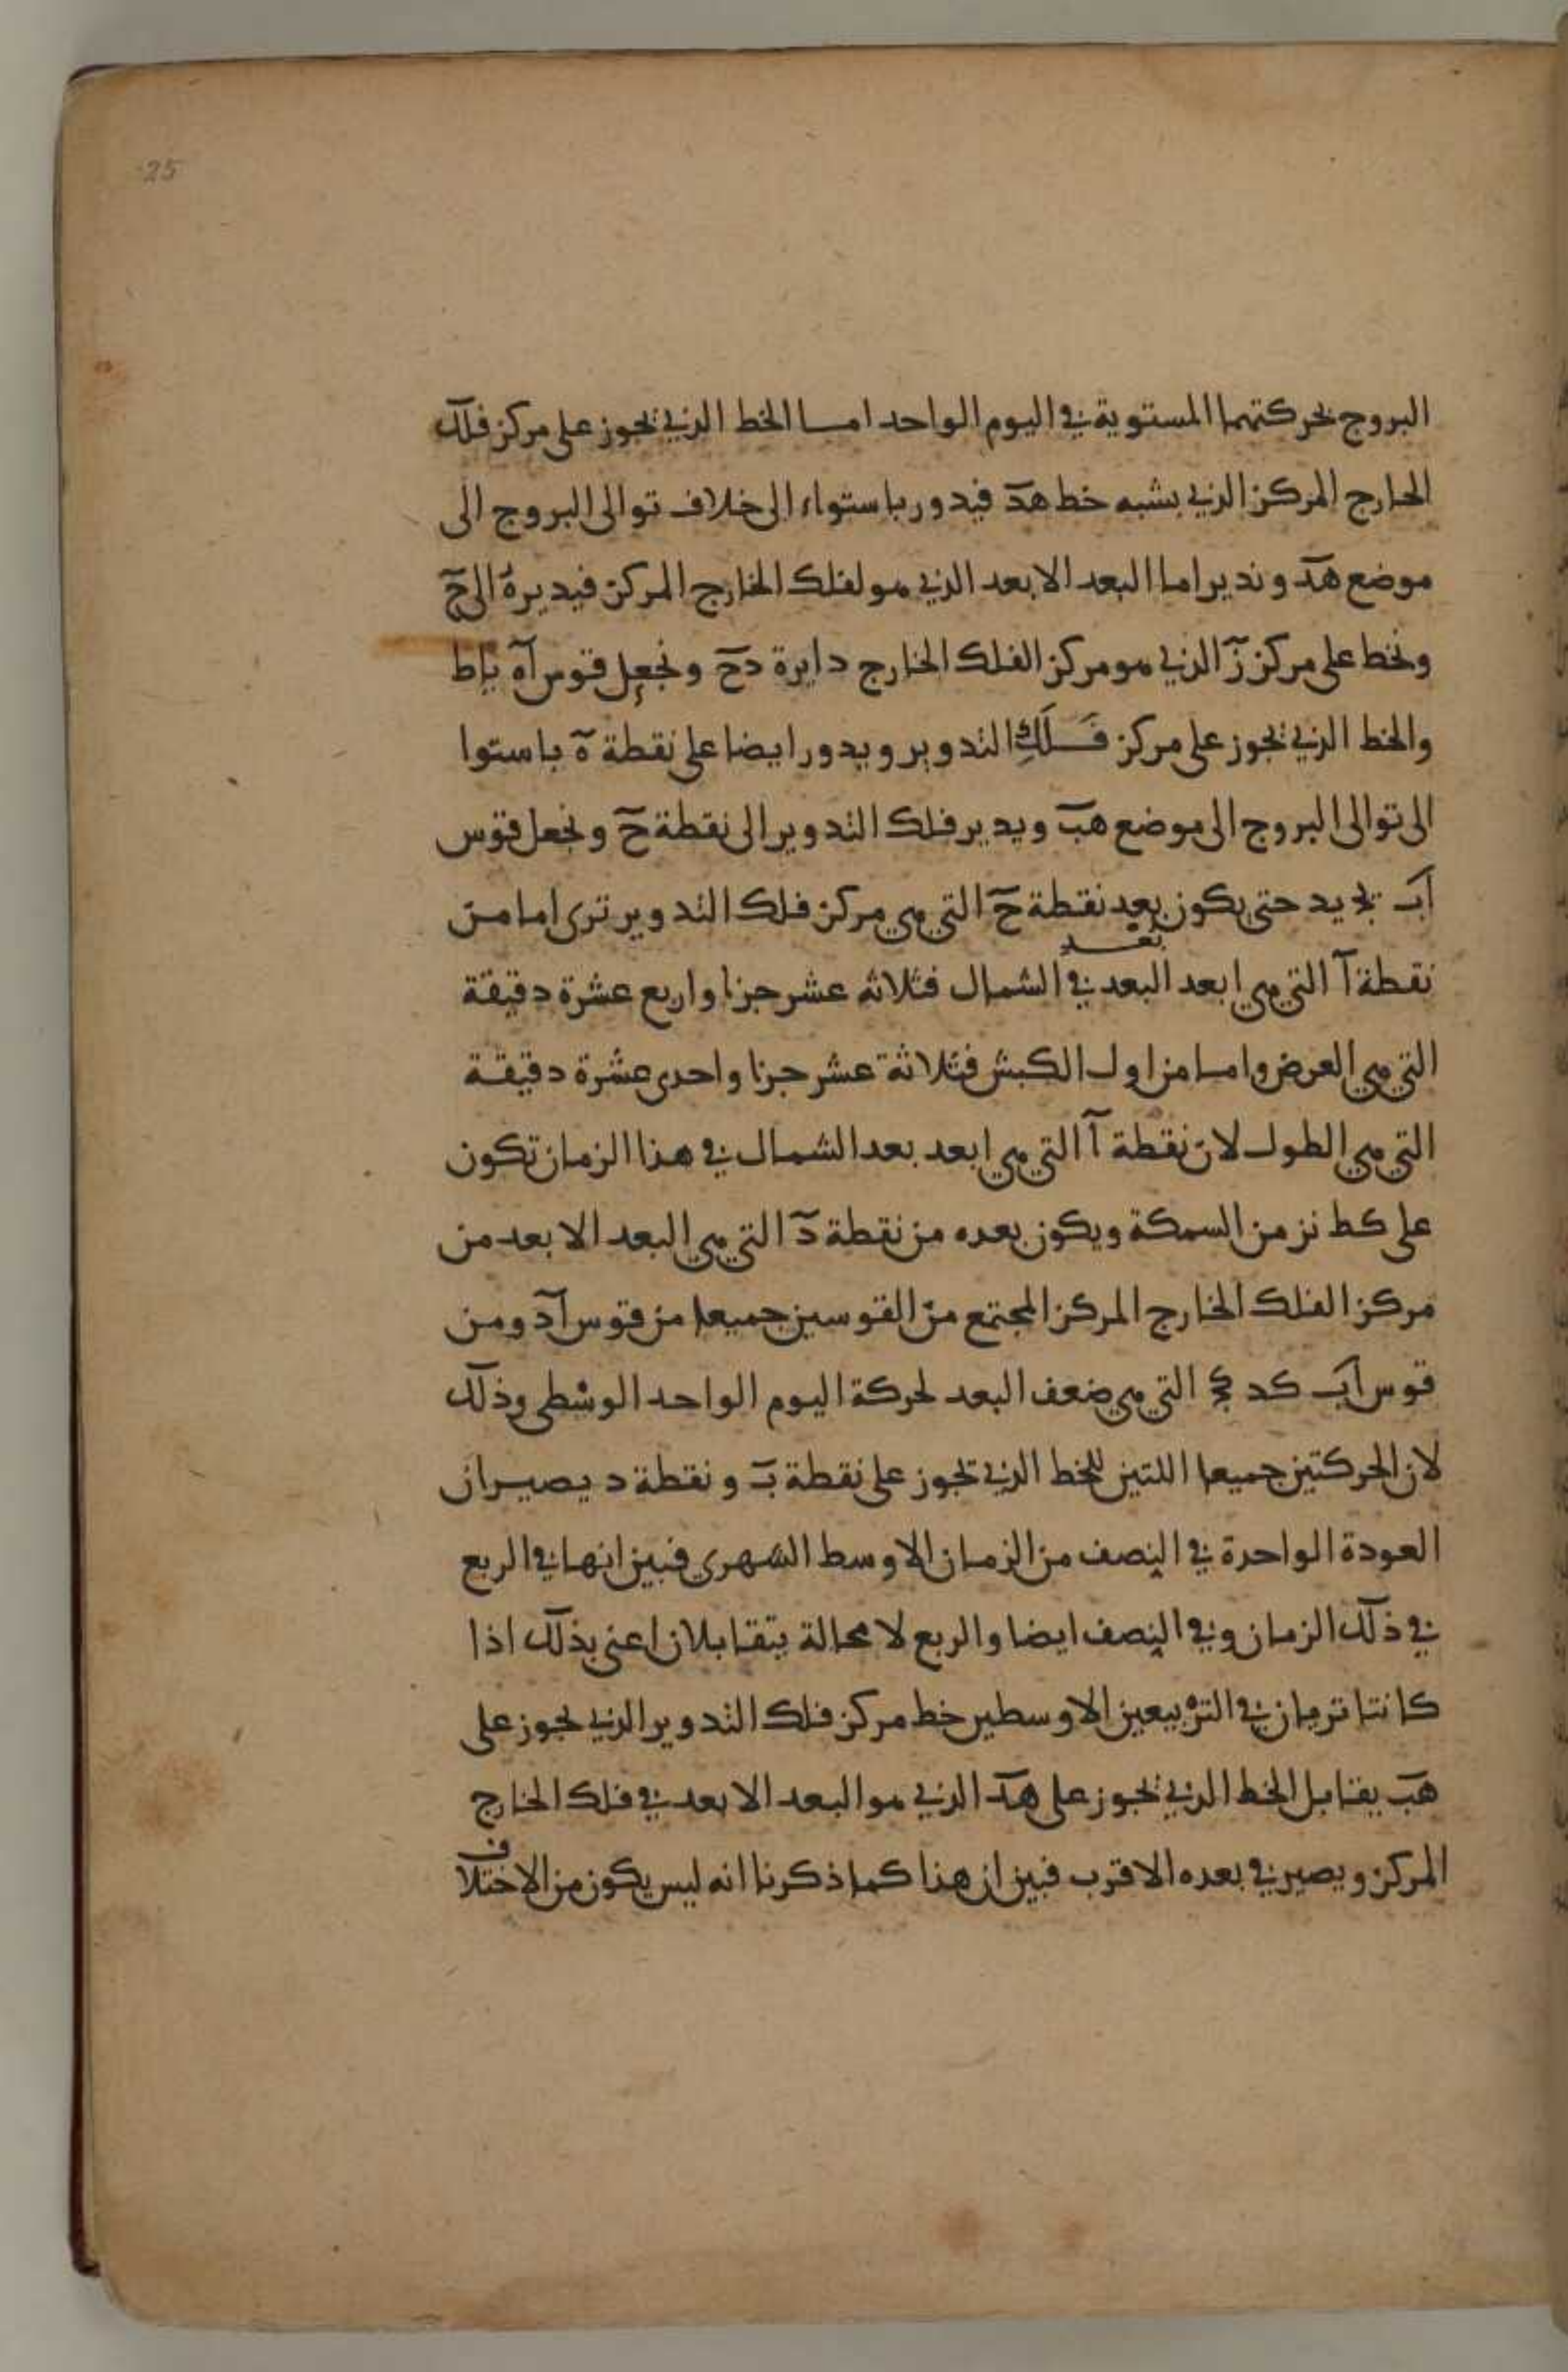 25
البروج بحركتهما المستوية في اليوم الواحد امـا الخط الذي يجوز على مركز فلك
الخارج المركز الذي يشبه خط هد فيدور باستواء الى خلاف توالى البروج الى
موضع هد ويدير اما البعد الابعد الذي هو لفلك الخارج المركز فيديره الى ح
ونخط على مركز ز الذي هو مركز الفلك الخارج دايرة دح ونجعل قوس اه يا ط
والخط الذي يجوز على مركز فـلك التدوير ويدور ايضا على نقطة ه باستوا
الى توالى البروج الى موضع هب ويدير فلك التدوير الى نقطة ح ونجعل قوس
اب يج يد حتى يكون بعد نقطة ح التي هي مركز فلك التدوير ترى اما من
بعد
نقطة ا التي هي ابعد البعد في الشمال فثلاثه عشر جزءا واربع عشرة دقيقة
التي هي العرض وامـا من اول الكبش فثلاثة عشر جزءا واحدى عشرة دقيقة
التي هي الطول لان نقطة ا التي هي ابعد بعد الشمال في هذا الزمان تكون
على كط نز من السمكة ويكون بعده من نقطة د التي هي البعد الابعد من
مركز الفلك الخارج المركز المجتمع من القوسين جميعا من قوس اد ومن
قوس اب كد كج التي هي ضعف البعد لحركة اليوم الواحد الوسطى وذلك
لان الحركتين جميعا اللتين للخط الذي تجوز على نقطة ب ونقطة د يصيران
العودة الواحدة في النصف من الزمان الاوسط الشهرى فبين انها في الربع
في ذلك الزمان وفي النصف ايضا والربع لا محالة يتقابلان اعنى بذلك اذا
كانتا ترمان في التربيعين الاوسطين خط مركز فلك التدوير الذي يجوز على
هب يقابل الخط الذي يجوز على هد الذي هو البعد الابعد في فلك الخارج
المركز ويصير في بعده الاقرب فبين ان هذا كما ذكرنا انه ليس يكون من الاختلاف